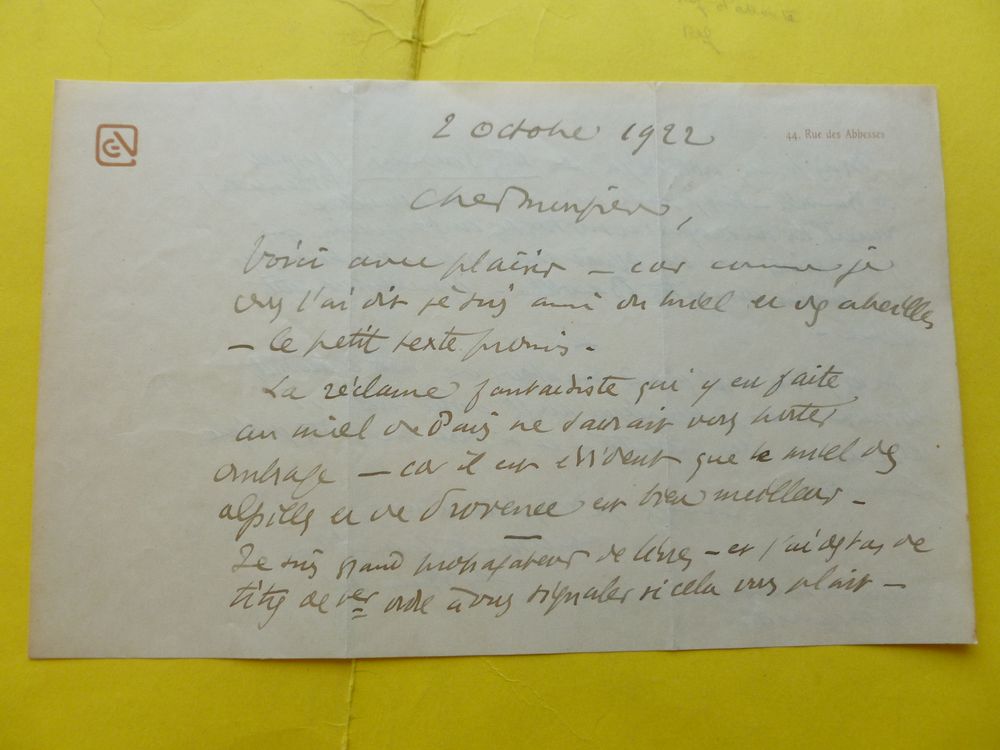 44, Rue des Abbesses
2 Octobre 1922
Cher Monsieur,
Voici avec plaisir — car comme je
vous l'ai dit je suis ami du miel et des abeilles
— le petit texte promis.
La réclame fantaisiste qui y est faite
au miel de Paris ne saurait vous porter
ombrage — car il est évident que le miel des
alpilles et de Provence est bien meilleur —
Je suis grand propagateur de livres — et j'ai des tas de
titres de 1er ordre à vous signaler si cela vous plait —